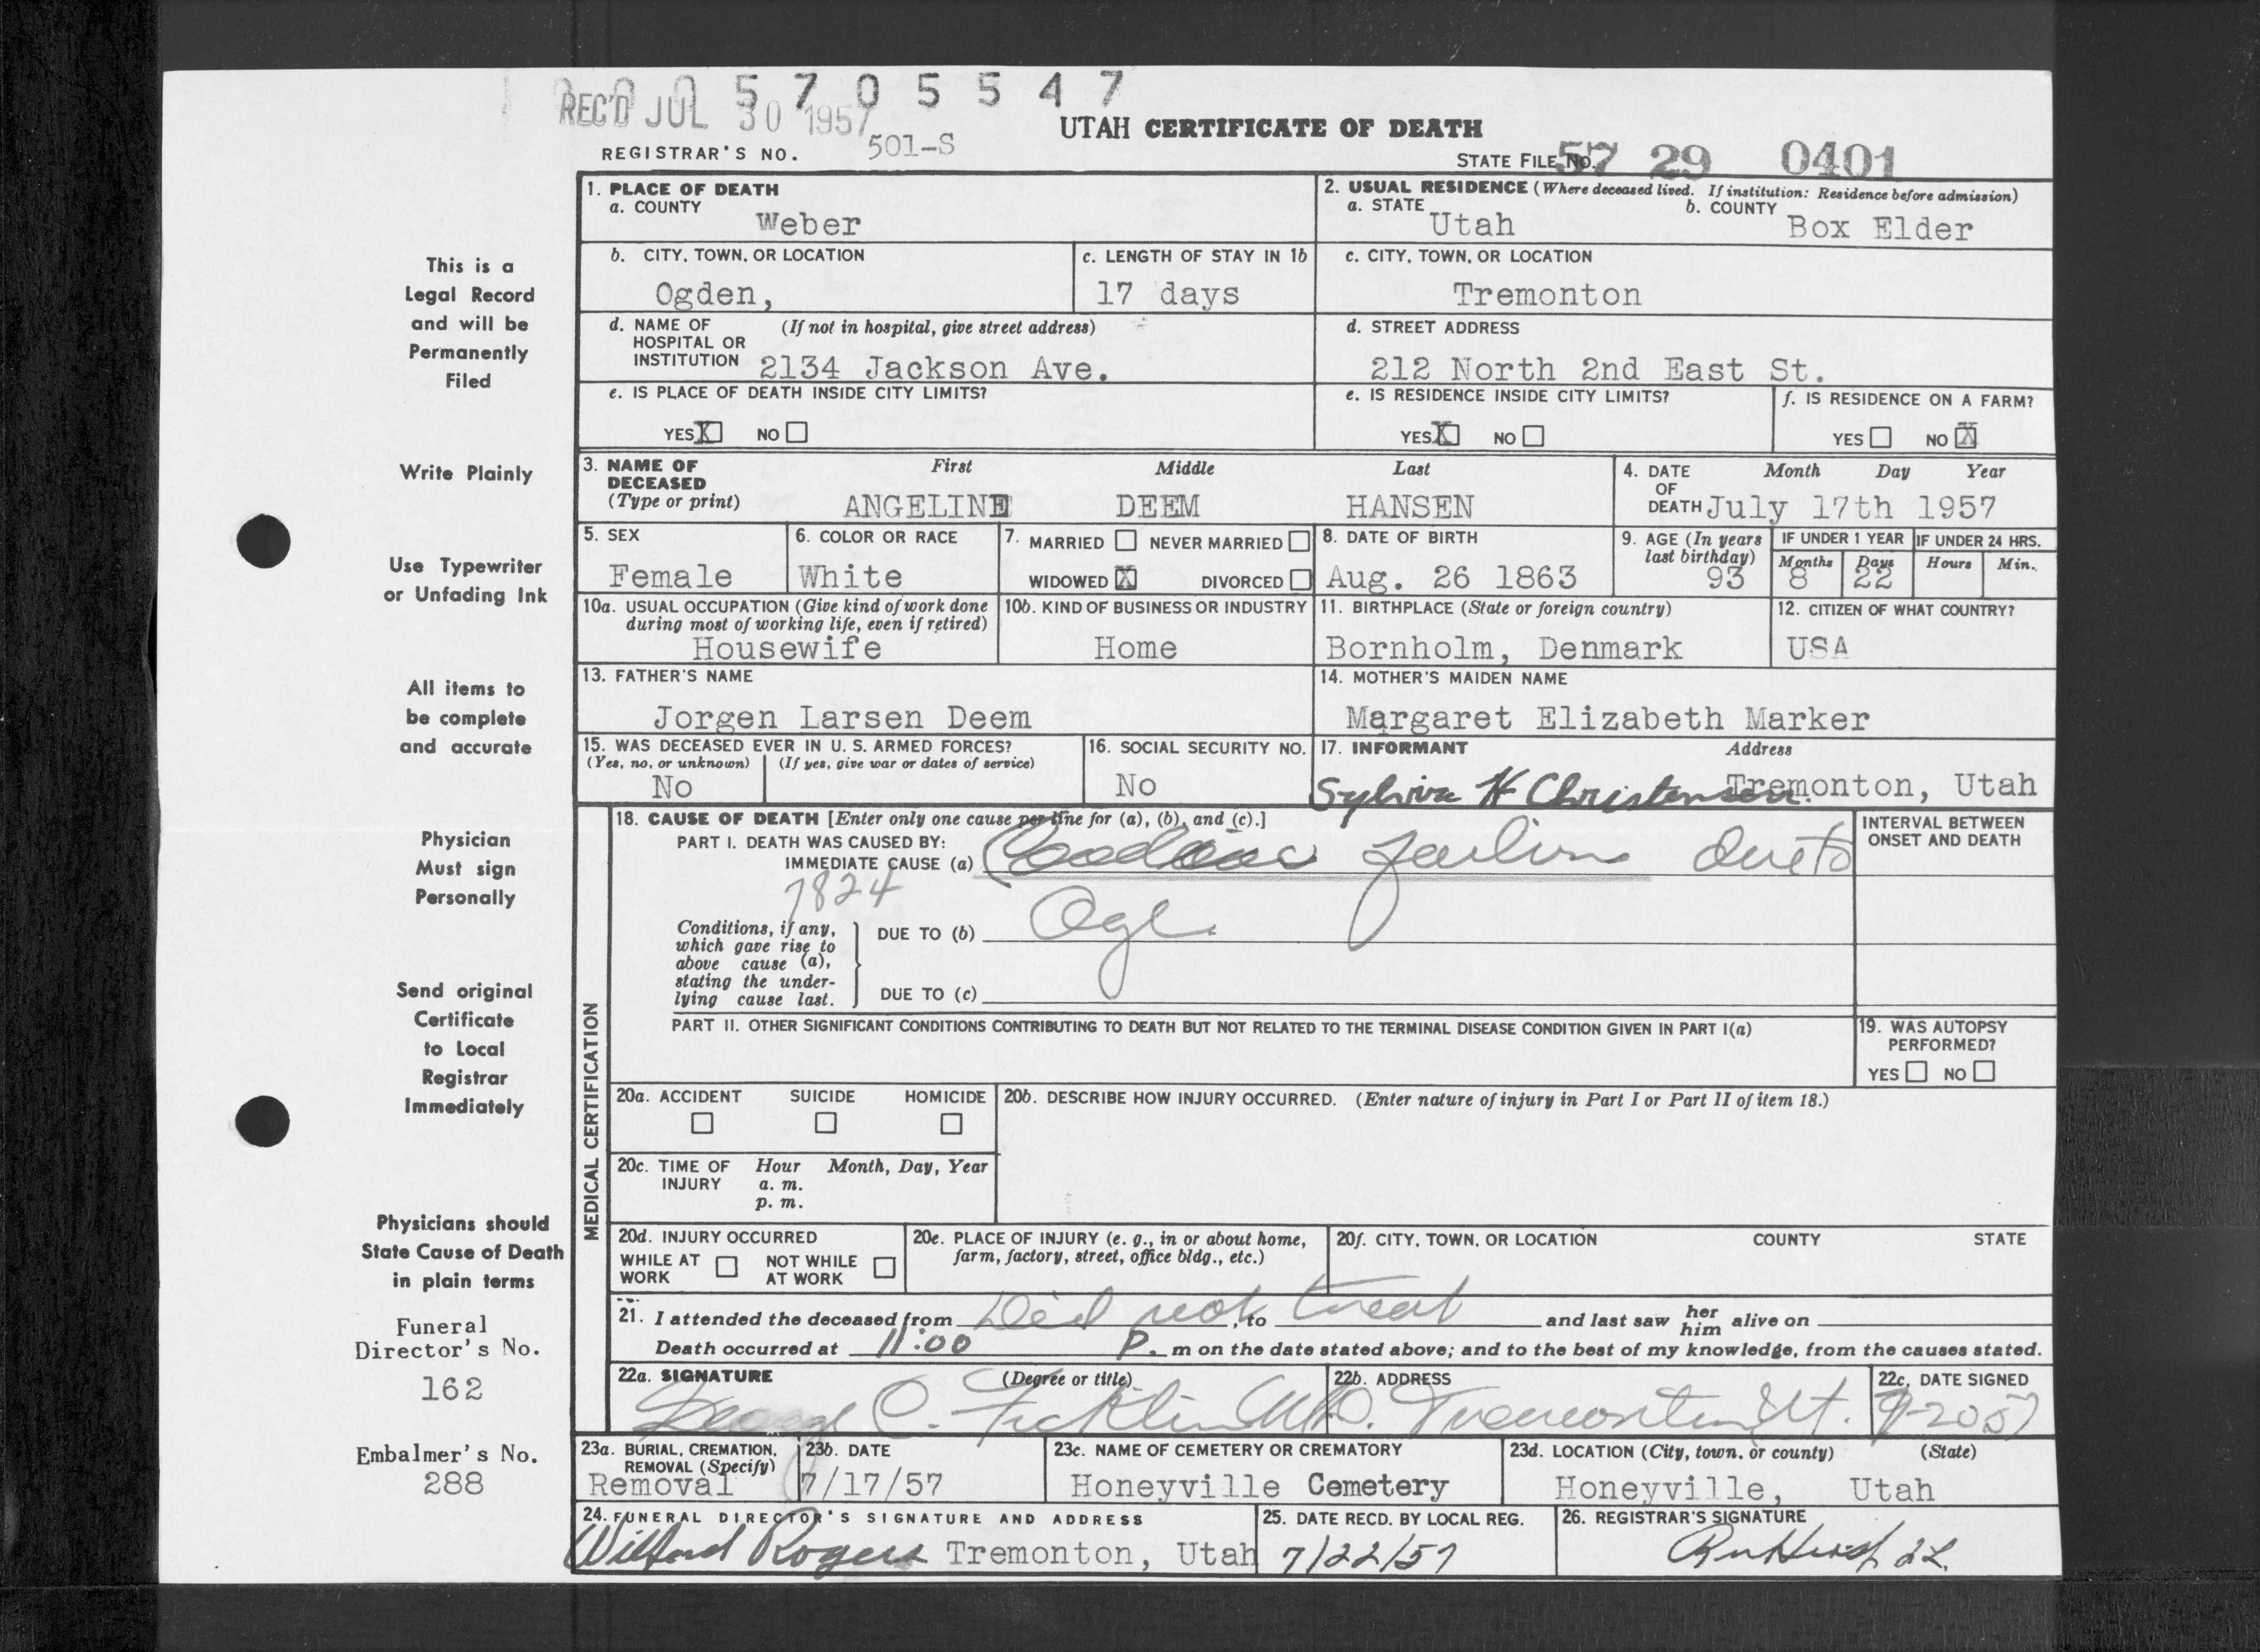 5 7 0 5 5 4 7
REC'D JUL 30 1957
UTAH CERTIFICATE OF DEATH
REGISTRAR'S NO. 501-S
STATE FILE NO. 57 29 0401
This is a
Legal Record
and will be
Permanently
Filed
Write Plainly
Use Typewriter
or Unfading Ink
All items to
be complete
and accurate
Physician
Must sign
Personally
Send original
Certificate
to Local
Registrar
Immediately
Physicians should
State Cause of Death
in plain terms
Funeral
Director's No.
162
Embalmer's No.
288
1. PLACE OF DEATH
a. COUNTY
Weber
2. USUAL RESIDENCE (Where deceased lived. If institution: Residence before admission)
a. STATE Utah b. COUNTY Box Elder
b. CITY, TOWN, OR LOCATION
Ogden,
c. LENGTH OF STAY IN 1b
17 days
c. CITY, TOWN, OR LOCATION
Tremonton
d. NAME OF (If not in hospital, give street address)
HOSPITAL OR
INSTITUTION 2134 Jackson Ave.
d. STREET ADDRESS
212 North 2nd East St.
e. IS PLACE OF DEATH INSIDE CITY LIMITS?
YES X NO
e. IS RESIDENCE INSIDE CITY LIMITS?
YES X NO
f. IS RESIDENCE ON A FARM?
YES NO X
3. NAME OF DECEASED
(Type or print)
First Middle Last
ANGELINE DEEM HANSEN
4. DATE OF DEATH
Month Day Year
July 17th 1957
5. SEX
Female
6. COLOR OR RACE
White
7. MARRIED NEVER MARRIED
WIDOWED X DIVORCED
8. DATE OF BIRTH
Aug. 26 1863
9. AGE (In years last birthday)
93
IF UNDER 1 YEAR
Months Days
8 22
IF UNDER 24 HRS.
Hours Min.
10a. USUAL OCCUPATION (Give kind of work done
during most of working life, even if retired)
Housewife
10b. KIND OF BUSINESS OR INDUSTRY
Home
11. BIRTHPLACE (State or foreign country)
Bornholm, Denmark
12. CITIZEN OF WHAT COUNTRY?
USA
13. FATHER'S NAME
Jorgen Larsen Deem
14. MOTHER'S MAIDEN NAME
Margaret Elizabeth Marker
15. WAS DECEASED EVER IN U. S. ARMED FORCES?
(Yes, no, or unknown) (If yes, give war or dates of service)
No
16. SOCIAL SECURITY NO.
No
17. INFORMANT Address
Sylvia H Christensen Tremonton, Utah
MEDICAL CERTIFICATION
18. CAUSE OF DEATH [Enter only one cause per line for (a), (b), and (c).]
PART I. DEATH WAS CAUSED BY:
IMMEDIATE CAUSE (a) Cardiac failure due to
7824
INTERVAL BETWEEN
ONSET AND DEATH
Conditions, if any,
which gave rise to
above cause (a),
stating the under-
lying cause last.
DUE TO (b) Age
DUE TO (c)
PART II. OTHER SIGNIFICANT CONDITIONS CONTRIBUTING TO DEATH BUT NOT RELATED TO THE TERMINAL DISEASE CONDITION GIVEN IN PART I(a)
19. WAS AUTOPSY
PERFORMED?
YES NO
20a. ACCIDENT SUICIDE HOMICIDE
20b. DESCRIBE HOW INJURY OCCURRED. (Enter nature of injury in Part I or Part II of item 18.)
20c. TIME OF INJURY
Hour Month, Day, Year
a. m.
p. m.
20d. INJURY OCCURRED
WHILE AT WORK NOT WHILE AT WORK
20e. PLACE OF INJURY (e. g., in or about home,
farm, factory, street, office bldg., etc.)
20f. CITY, TOWN, OR LOCATION COUNTY STATE
21. I attended the deceased from Did not, to treat and last saw her him alive on
Death occurred at 11:00 P. m on the date stated above; and to the best of my knowledge, from the causes stated.
22a. SIGNATURE (Degree or title)
George C. Ficklin M.D.
22b. ADDRESS
Tremonton Ut.
22c. DATE SIGNED
7-20 57
23a. BURIAL, CREMATION,
REMOVAL (Specify)
Removal
23b. DATE
7/17/57
23c. NAME OF CEMETERY OR CREMATORY
Honeyville Cemetery
23d. LOCATION (City, town, or county) (State)
Honeyville, Utah
24. FUNERAL DIRECTOR'S SIGNATURE AND ADDRESS
Wilford Rogers Tremonton, Utah
25. DATE RECD. BY LOCAL REG.
7/22/57
26. REGISTRAR'S SIGNATURE